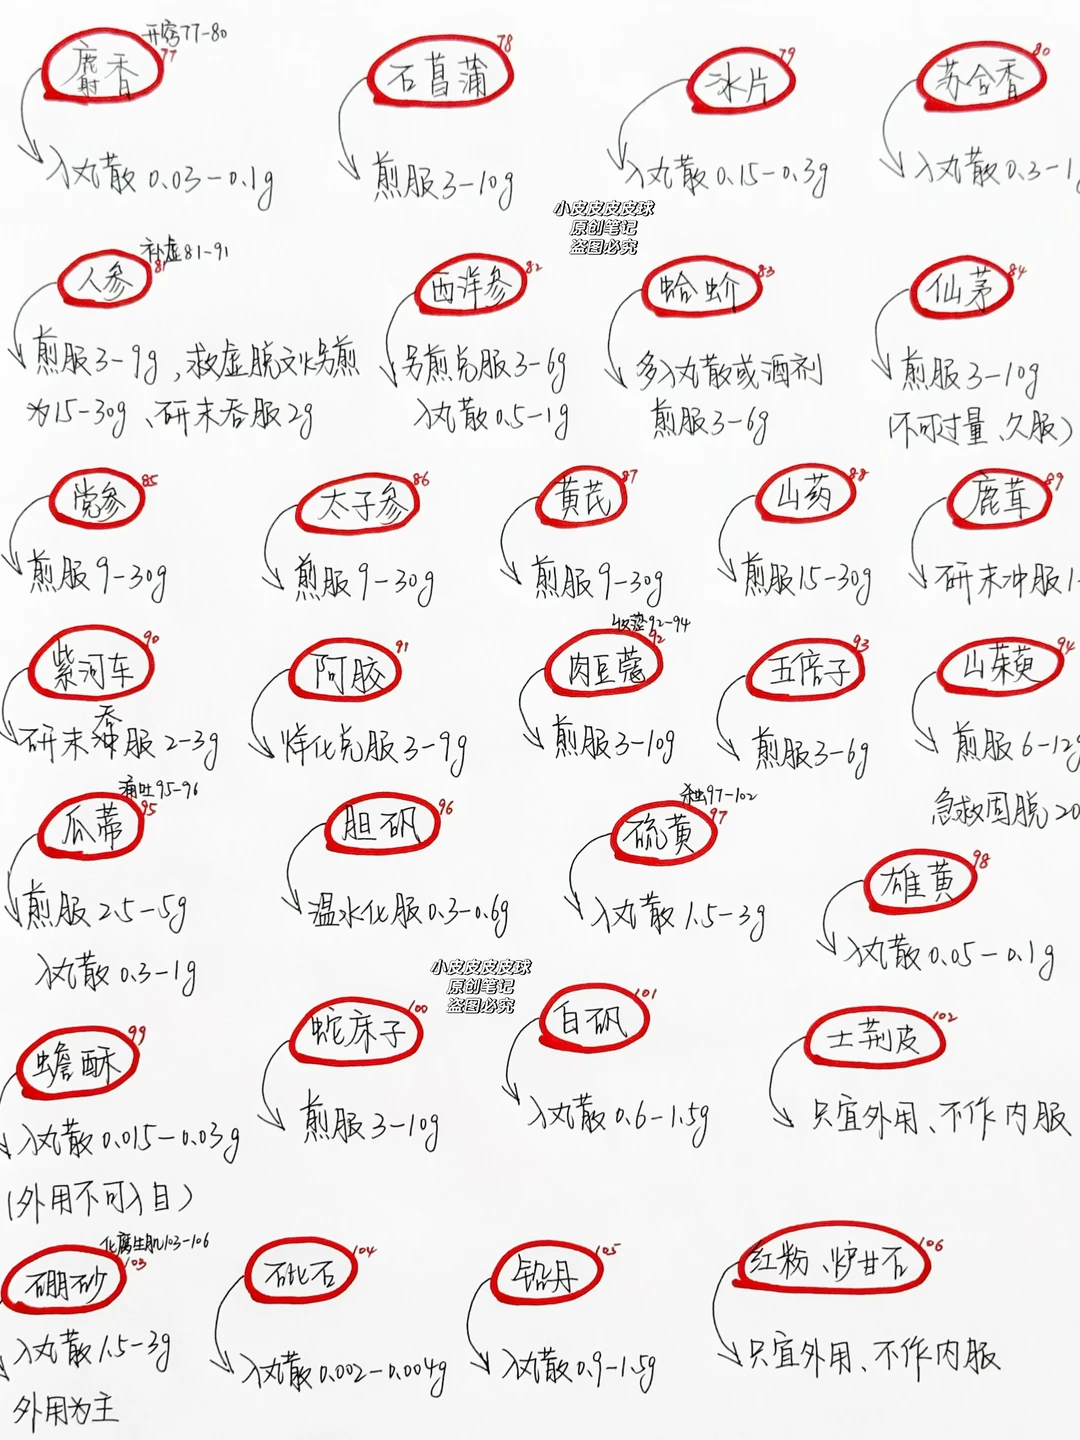 开窍77-80
麝香 77
石菖蒲 78
冰片 79
苏合香 80
入丸散0.03-0.1g
煎服3-10g
入丸散0.15-0.3g
入丸散0.3-1
小皮皮皮皮球
原创笔记
盗图必究
补虚81-91
人参 81
西洋参 82
蛤蚧 83
仙茅 84
煎服3-9g,救虚脱文火另煎
为15-30g、研末吞服2g
另煎兑服3-6g
入丸散0.5-1g
多入丸散或酒剂
煎服3-6g
煎服3-10g
(不可过量、久服)
党参 85
太子参 86
黄芪 87
山药 88
鹿茸 89
煎服9-30g
煎服9-30g
煎服9-30g
煎服15-30g
研末冲服1-
紫河车 90
阿胶 91
收涩92-94
肉豆蔻 92
五倍子 93
山茱萸 94
研末吞服2-3g
烊化兑服3-9g
煎服3-10g
煎服3-6g
煎服6-12g
急救固脱20
涌吐95-96
瓜蒂 95
胆矾 96
杀虫97-102
硫黄 97
雄黄 98
煎服2.5-5g
入丸散0.3-1g
温水化服0.3-0.6g
入丸散1.5-3g
入丸散0.05-0.1g
小皮皮皮皮球
原创笔记
盗图必究
蟾酥 99
蛇床子 100
白矾 101
土荆皮 102
入丸散0.015-0.03g
(外用不可入目)
煎服3-10g
入丸散0.6-1.5g
只宜外用、不作内服
化腐生肌103-106
硼砂 103
砒石 104
铅丹 105
红粉、炉甘石 106
入丸散1.5-3g
外用为主
入丸散0.002-0.004g
入丸散0.9-1.5g
只宜外用、不作内服